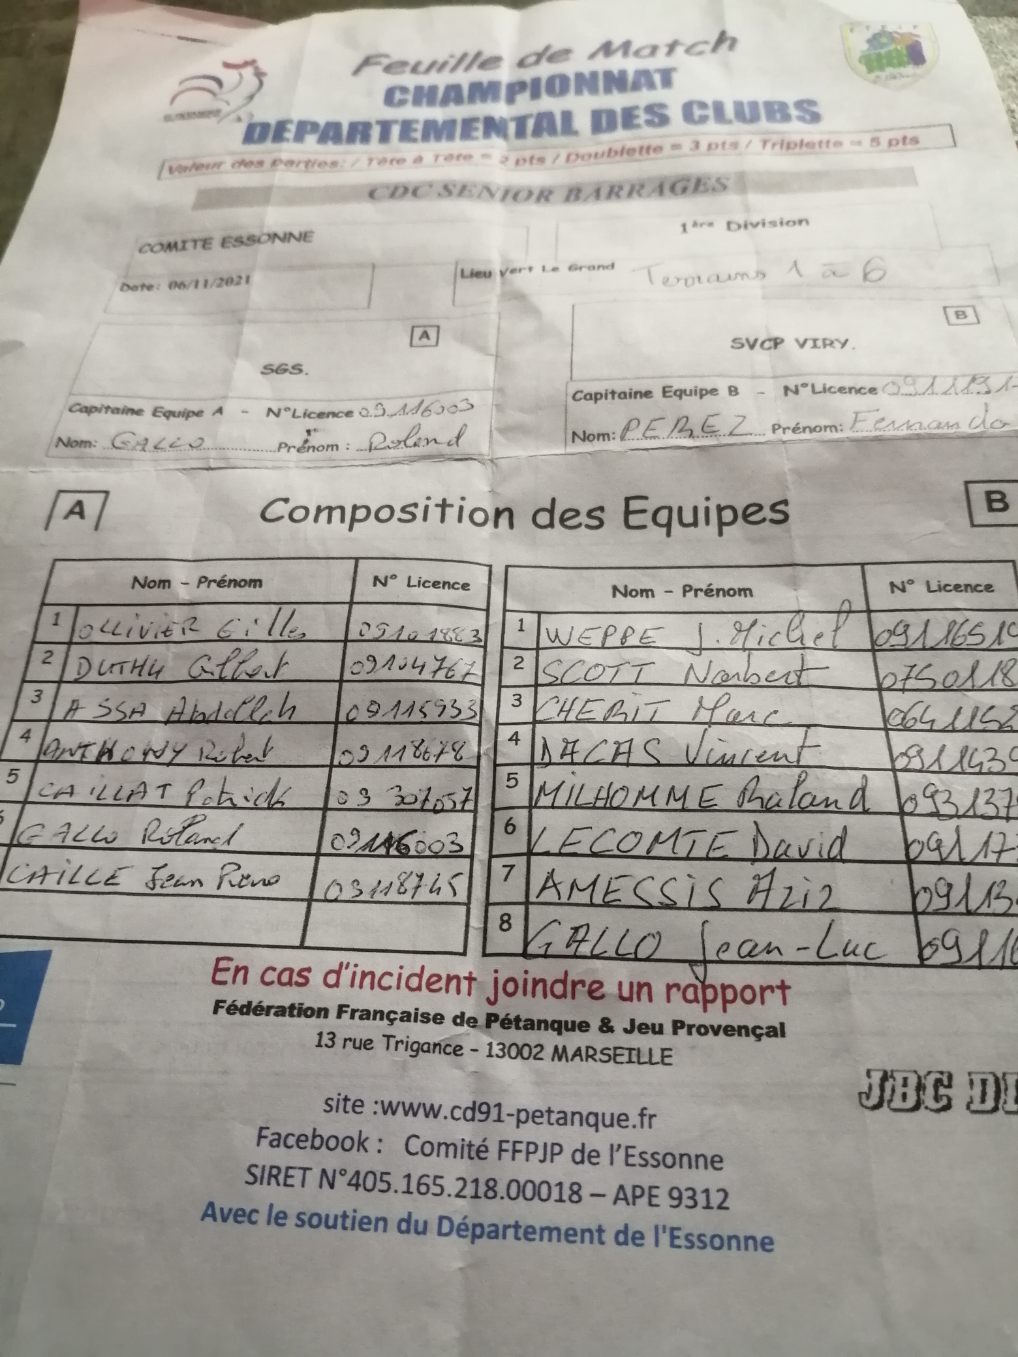 Feuille de Match
CHAMPIONNAT
DEPARTEMENTAL DES CLUBS
Valeur des Parties: / Tête à Tête = 2 pts / Doublette = 3 pts / Triplette = 5 pts
CDC SENIOR BARRAGES
COMITE ESSONNE
1ère Division
Date: 06/11/2021
Lieu Vert Le Grand Terrains 1 à 6
A
B
SGS.
SVCP VIRY.
Capitaine Equipe A - N°Licence 09116003
Capitaine Equipe B - N°Licence 0911131
Nom: GALLO Prénom : Roland
Nom: PEREZ Prénom: Fernando
A
Composition des Equipes
B
Nom - Prénom N° Licence
1 OLLIVIER Gilles 09101883
2 DUTHU Gilbert 09104767
3 ASSA Abdellah 09115933
4 ANTHONY Robert 09118678
5 CAILLAT Patrick 09307057
GALLO Roland 09116003
CAILLE Jean Pierre 09118745
Nom - Prénom N° Licence
1 WEPPE J.Michel 09116519
2 SCOTT Norbert 0750118
3 CHERIT Marc 0641152
4 DACAS Vincent 0911439
5 MILHOMME Roland 093137
6 LECOMTE David 09117
7 AMESSIS Aziz 09113
8 GALLO Jean-Luc 09116
En cas d'incident joindre un rapport
Fédération Française de Pétanque & Jeu Provençal
13 rue Trigance - 13002 MARSEILLE
JBC DI
site :www.cd91-petanque.fr
Facebook : Comité FFPJP de l'Essonne
SIRET N°405.165.218.00018 – APE 9312
Avec le soutien du Département de l'Essonne